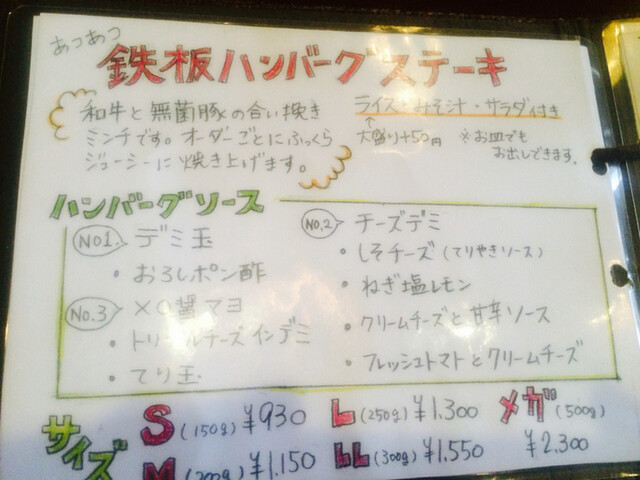 あつあつ
鉄板ハンバーグステーキ
和牛と無菌豚の合い挽き
ミンチです。オーダーごとにふっくら
ジューシーに焼き上げます。
ライス・みそ汁・サラダ付き
↑
大盛り+50円 ※お皿でも
お出しできます。
ハンバーグソース
No1. デミ玉
・おろしポン酢
No.3 XO醤マヨ
・トリプルチーズインデミ
・てり玉
No.2 チーズデミ
・しそチーズ(てりやきソース)
・ねぎ塩レモン
・クリームチーズと甘辛ソース
・フレッシュトマトとクリームチーズ
サイズ
S(150g)¥930 L(250g)¥1.300 メガ(500g)
M(200g)¥1.150 LL(300g)¥1.550 ¥2.300